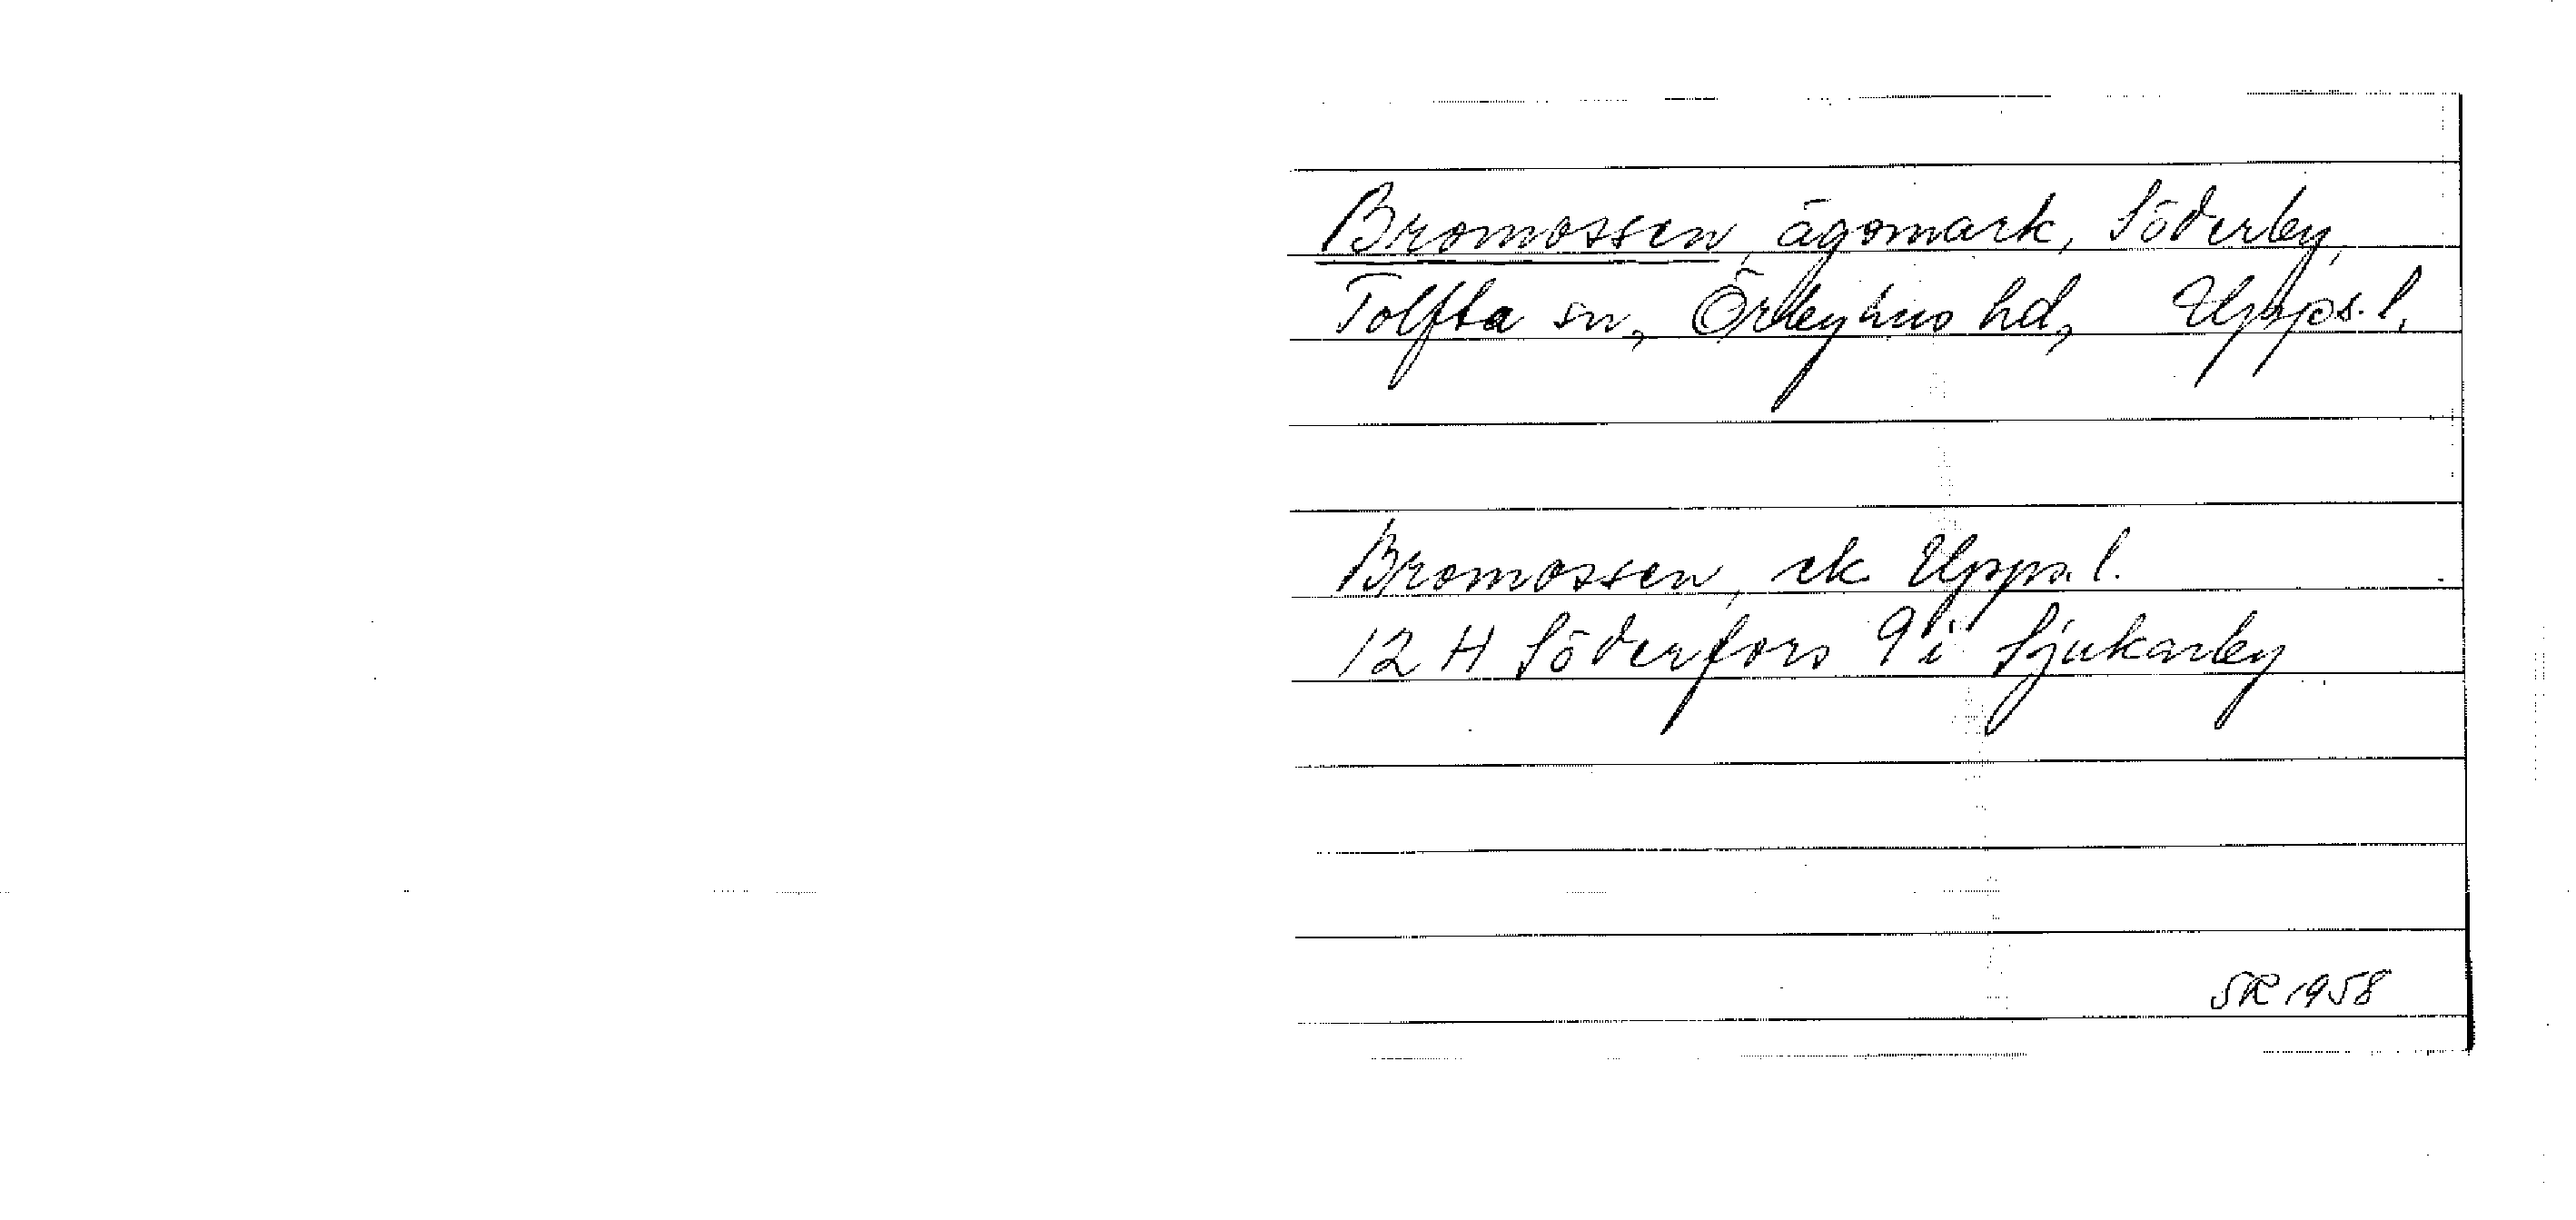 Bromossen, ägomark, Söderby,
Tolfta sn, Örbyhus hd, Upps. l.
Bromossen, ek Upps. l.
12 H Söderfors 9 i Sjukarby
SR 1958